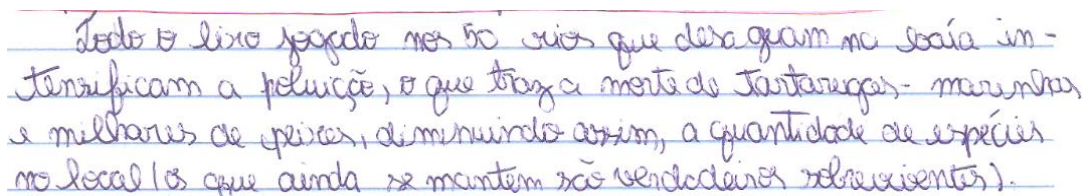 Todo o lixo jogado nos 50 rios que desaguam na baía in-
tensificam a poluição, o que traz a morte de tartarugas-marinhas
e milhares de peixes, diminuindo assim, a quantidade de espécies
no local (os que ainda se mantem são verdadeiros sobreviventes).